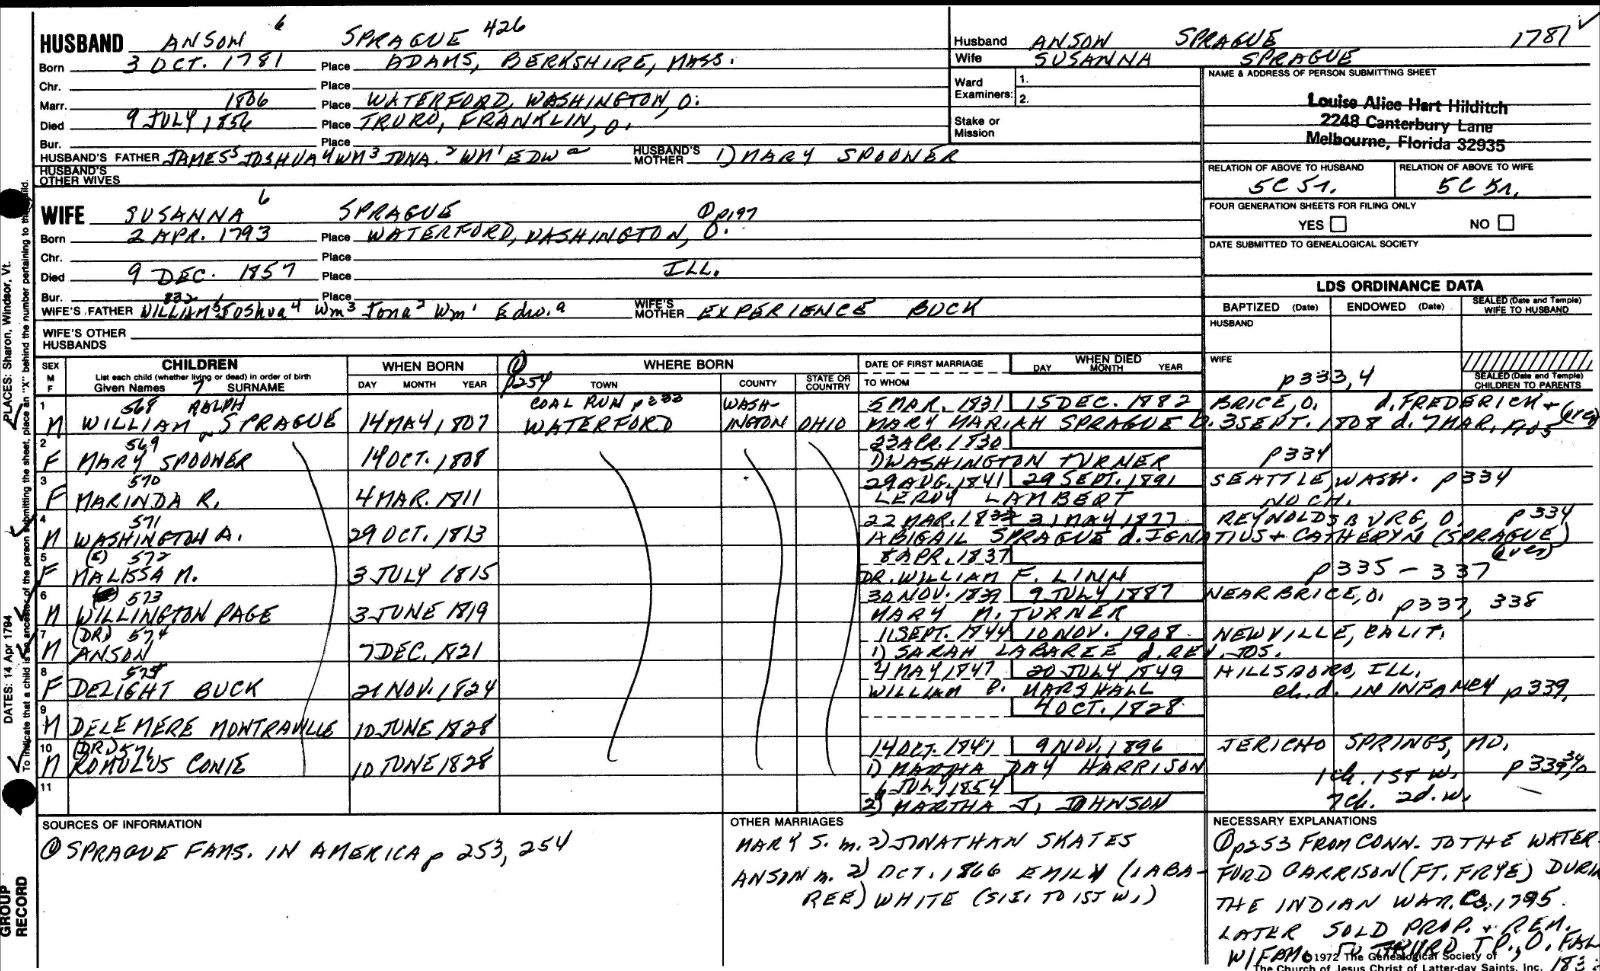 HUSBAND ANSON 6 SPRAGUE 426
Born 3 OCT. 1781 Place ADAMS, BERKSHIRE, MASS.
Chr. Place
Marr. 1806 Place WATERFORD, WASHINGTON, O.
Died 9 JULY 1856 Place TRURO, FRANKLIN, O.
Bur. Place
HUSBAND'S FATHER JAMES5 JOSHUA4 WM3 JONA.2 WM1 EDWa HUSBAND'S MOTHER 1) MARY SPOONER
HUSBAND'S OTHER WIVES
WIFE SUSANNA 6 SPRAGUE ① p197
Born 2 APR. 1793 Place WATERFORD, WASHINGTON, O.
Chr. Place
Died 9 DEC. 1857 Place ILL.
Bur. Place
WIFE'S FATHER WILLIAM5 Joshua4 Wm3 Jona2 Wm1 Edw.a WIFE'S MOTHER EXPERIENCE BUCK
WIFE'S OTHER HUSBANDS
Husband ANSON SPRAGUE 1781
Wife SUSANNA SPRAGUE
Ward Examiners: 1. 2.
Stake or Mission
NAME & ADDRESS OF PERSON SUBMITTING SHEET
Louise Alice Hart Hilditch
2248 Canterbury Lane
Melbourne, Florida 32935
RELATION OF ABOVE TO HUSBAND RELATION OF ABOVE TO WIFE
5C 5r. 5C 5r.
FOUR GENERATION SHEETS FOR FILING ONLY
YES NO
DATE SUBMITTED TO GENEALOGICAL SOCIETY
LDS ORDINANCE DATA
BAPTIZED (Date) ENDOWED (Date) SEALED (Date and Temple) WIFE TO HUSBAND
HUSBAND
WIFE p333,4
SEALED (Date and Temple) CHILDREN TO PARENTS
SEX M F
CHILDREN
List each child (whether living or dead) in order of birth
Given Names 7 SURNAME
WHEN BORN
DAY MONTH YEAR
① p254 WHERE BORN
TOWN COUNTY STATE OR COUNTRY
DATE OF FIRST MARRIAGE
TO WHOM
WHEN DIED
DAY MONTH YEAR
1 568 RALPH COAL RUN p333 WASH- 5 MAR. 1831 15 DEC. 1882 BRICE, O. d. FREDERICK +
M WILLIAM SPRAGUE 14 MAY 1807 WATERFORD INGTON OHIO MARY MARIAH SPRAGUE b. 3 SEPT. 1808 d. 7 MAR. 1905 (over)
2 569 23 APR. 1830
F MARY SPOONER 14 OCT. 1808 1) WASHINGTON TURNER p334
3 570 29 AUG. 1841 29 SEPT. 1891 SEATTLE, WASH. p334
F MARINDA R. 4 MAR. 1811 LEROY LAMBERT NO CH.
4 571 22 MAR. 21 MAY 1877 REYNOLDSBURG, O. p334
M WASHINGTON A. 29 OCT. 1813 ABIGAIL SPRAGUE d. IGNATIUS + CATHERYN (SPRAGUE) (over)
5 572 8 APR. 1837
F MALISSA M. 3 JULY 1815 DR. WILLIAM F. LINN p335-337
6 573 30 NOV. 1839 9 JULY 1887 NEAR BRICE, O. p337, 338
M WILLINGTON PAGE 3 JUNE 1819 MARY M. TURNER
7 (DR) 574 11 SEPT. 1844 10 NOV. 1908 NEWVILLE, CALIF.
M ANSON 7 DEC. 1821 1) SARAH LABAREE d. REV. JOS.
8 575 4 MAY 1847 20 JULY 1849 HILLSBORO, ILL.
F DELIGHT BUCK 21 NOV. 1824 WILLIAM P. MARSHALL ch. d. IN INFANCY p339,
9 4 OCT. 1828
M DELEMERE MONTRAVILLE 10 JUNE 1828
10 (DR) 576 14 OCT. 1847 9 NOV. 1896 JERICHO SPRINGS, MO.
M ROMULUS CONIE 10 JUNE 1828 1) MARTHA DAY HARRISON 1 ch. 1ST W. p339,340
11 6 JULY 1854 7 ch. 2d. W.
2) MARTHA J. JOHNSON
SOURCES OF INFORMATION
① SPRAGUE FAMS. IN AMERICA p 253, 254
OTHER MARRIAGES
MARY S. m. 2) JONATHAN SKATES
ANSON m. 2) OCT. 1866 EMILY (LABA-
REE) WHITE (SIS. TO 1ST W.)
NECESSARY EXPLANATIONS
① p253 FROM CONN. TO THE WATER-
FORD GARRISON (FT. FRYE) DURIN
THE INDIAN WAR. Ca. 1795.
LATER SOLD PROP. + REM.
W/ FAM. TO TRURO TP., O. FAL
©1972 The Genealogical Society of 183
The Church of Jesus Christ of Latter-day Saints, Inc.
PLACES: Sharon, Windsor, Vt.
DATES: 14 Apr 1794
To indicate that a child is an ancestor of the person submitting the sheet, place an "X" behind the number pertaining to the child.
GROUP RECORD